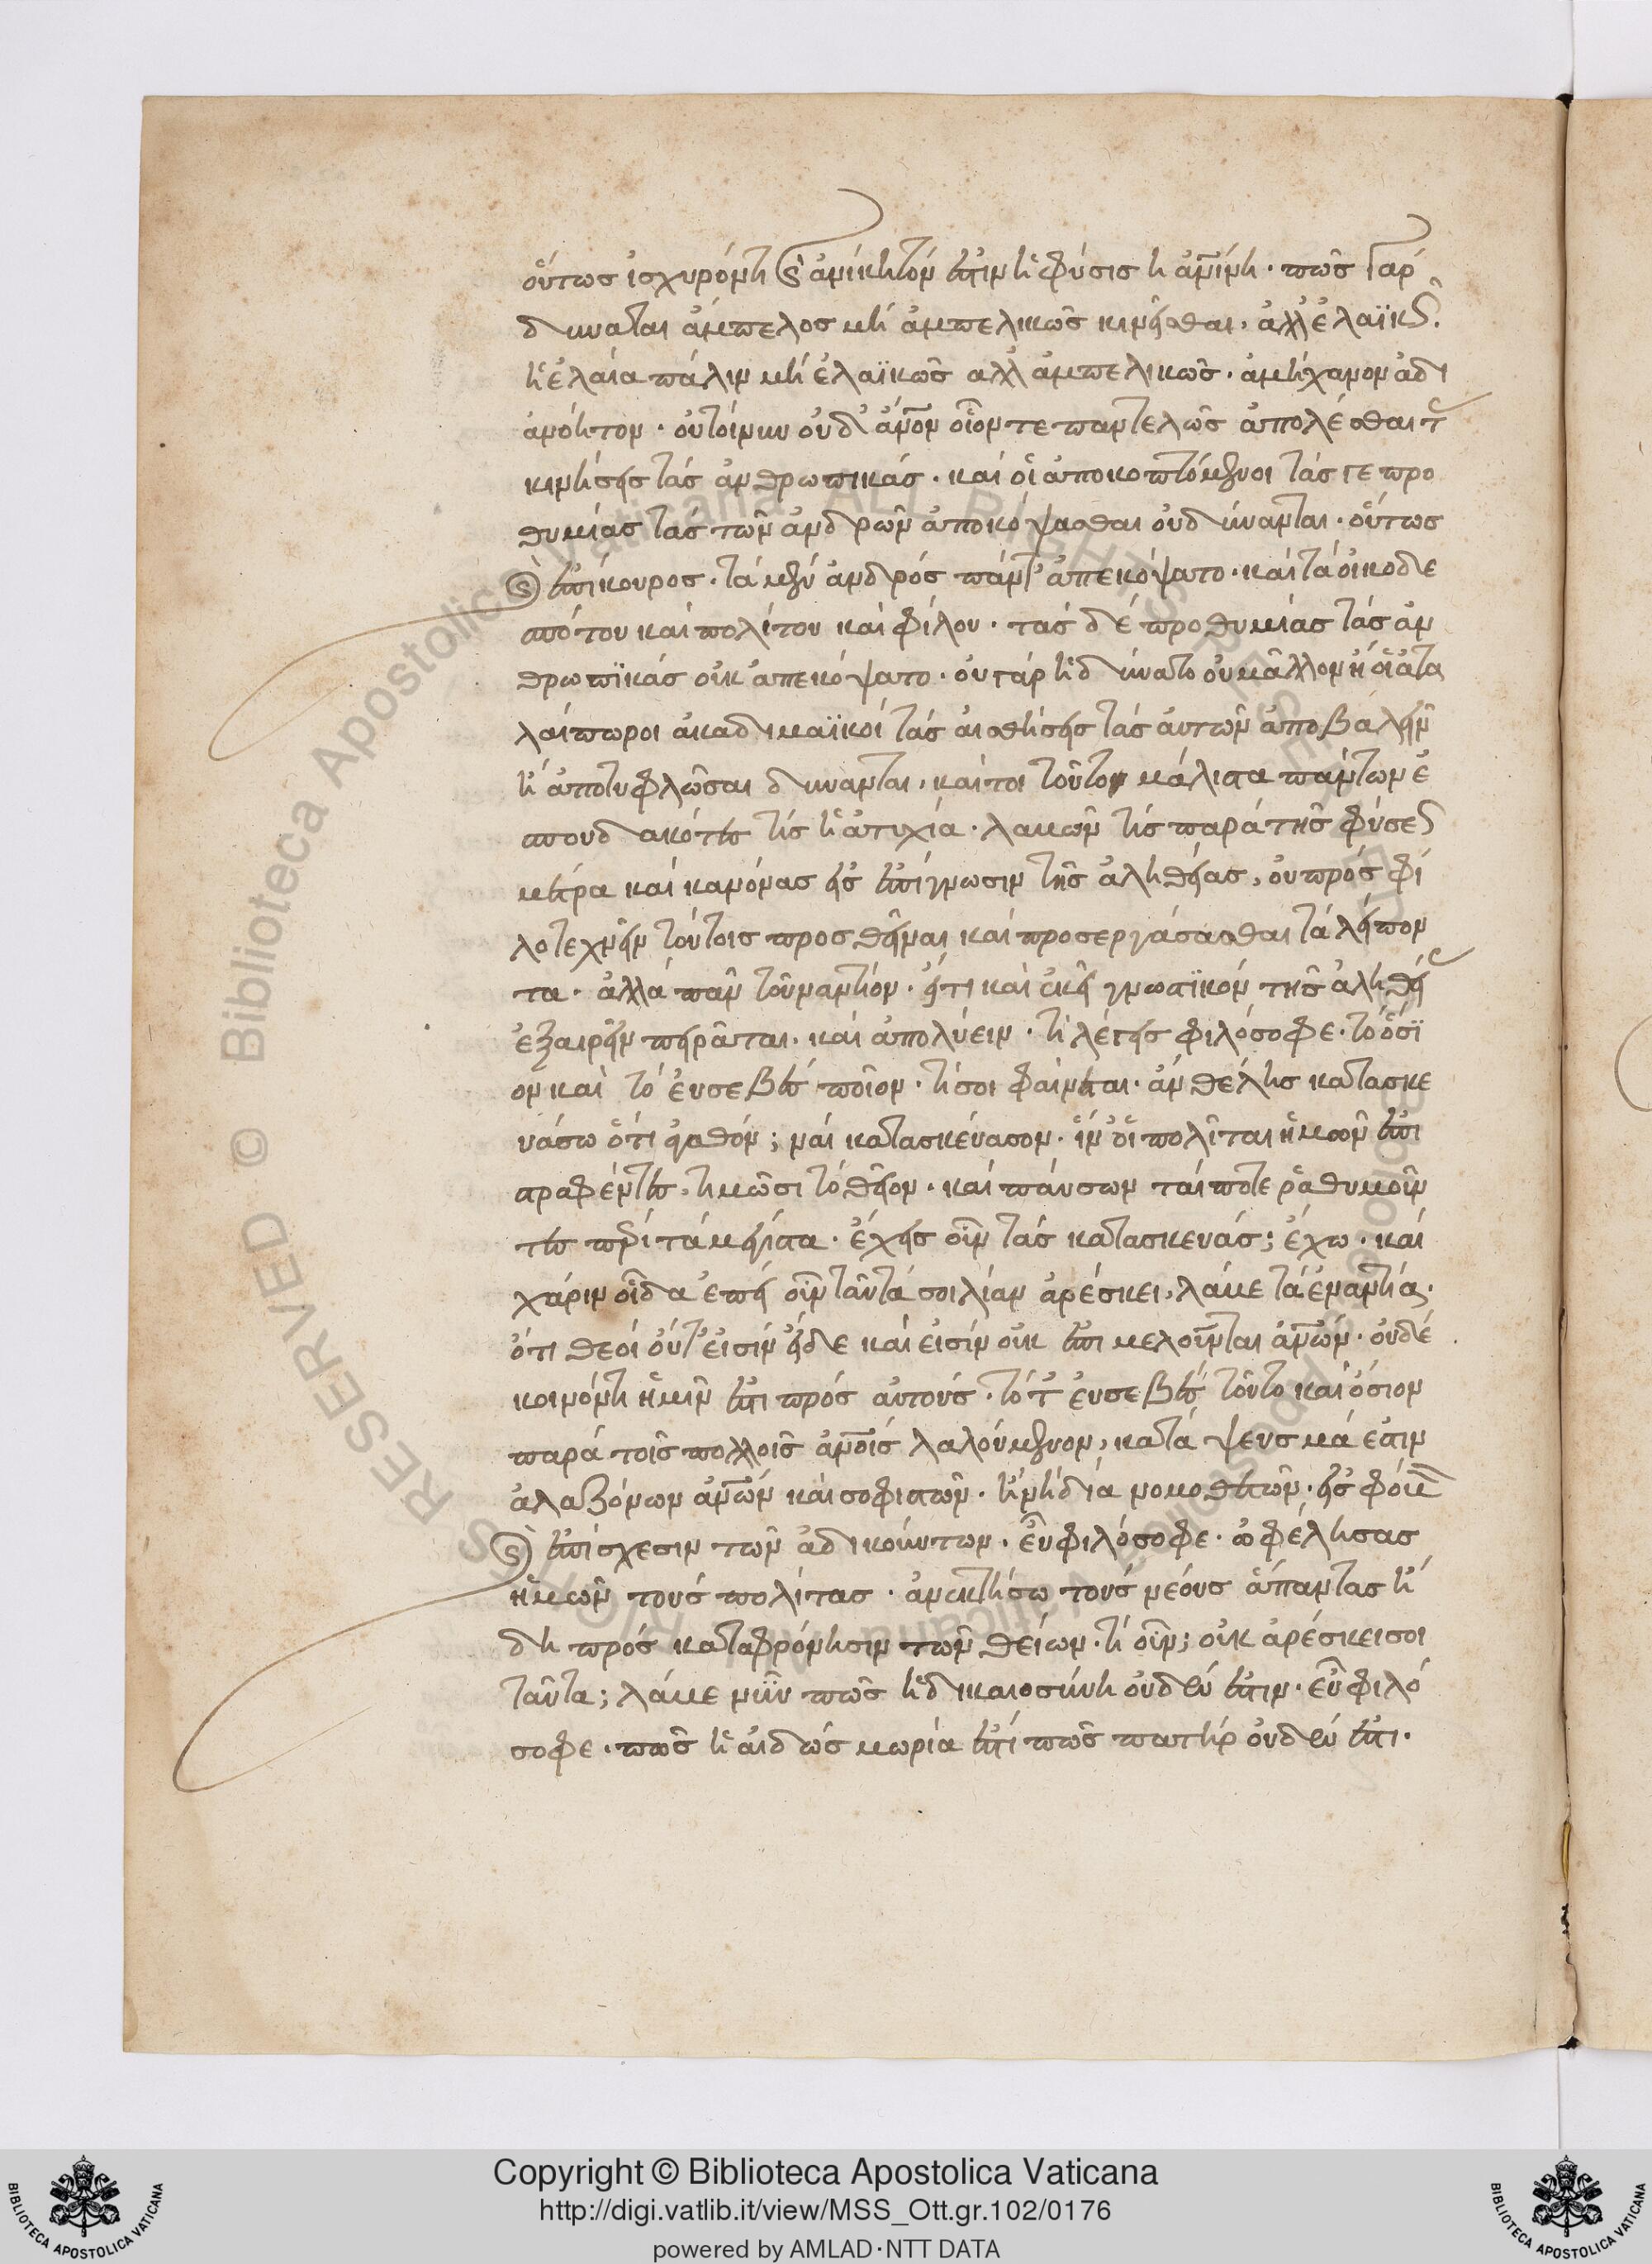 οὕτως ἰσχυρόν τι καὶ ἀνίκητόν ἐστιν ἡ φύσις ἡ ἀνίνη. πῶς γὰρ
δύναται ἄμπελος μὴ ἀμπελικῶς κινεῖσθαι, ἀλλ' ἐλαϊκῶς.
ἢ ἐλαία πάλιν μὴ ἐλαϊκῶς ἀλλ' ἀμπελικῶς. ἀμήχανον ἀδι
ανόητον. οὐ τοίνυν οὐδ' ἄνον οἷόν τε παντελῶς ἀπολέσθαι τὰς
κινήσεις τὰς ἀνθρωπικάς. καὶ οἱ ἀποκοπτόμενοι τάς γε προ
θυμίας τὰς τῶν ἀνδρῶν ἀποκόψασθαι οὐ δύνανται. οὕτως
καὶ ἐπίκουρος. τὰ μὲν ἀνδρὸς πάντ' ἀπεκόψατο. καὶ τὰ οἰκοδε
σπότου καὶ πολίτου καὶ φίλου. τὰς δὲ προθυμίας τὰς ἀν
θρωπϊκὰς οὐκ ἀπεκόψατο. οὐ γὰρ ἠδύνατο οὐ μᾶλλον ἢ οἱ ἀτα
λαίπωροι ἀκαδημαϊκοὶ τὰς αἰσθήσεις τὰς αὑτῶν ἀποβαλεῖν
ἢ ἀποτυφλῶσαι δύνανται, καίτοι τοῦτο μάλιστα πάντων ἐ
σπουδακότες τίς ἡ ἀτυχία. λαβών τις παρὰ τῆς φύσεως
μέτρα καὶ κανόνας εἰς ἐπίγνωσιν τῆς ἀληθείας, οὐ πρὸς φι
λοτεχνεῖν τούτοις προσθεῖναι καὶ προσεργάσασθαι τὰ λείπον
τα. ἀλλὰ πᾶν τοὐναντίον. εἴ τι καὶ ἐκεῖ γνωστϊκὸν τῆς ἀληθείας
ἐξαιρεῖν πειρᾶται. καὶ ἀπολύειν. τί λέγεις φιλόσοφε. τὸ ὅσϊ
ον καὶ τὸ εὐσεβὲς ποῖον. τί σοι φαίνεται. ἂν θέλῃς κατασκε
υάσω ὅτι ἀγαθόν; ναὶ κατασκεύασον. ἵν' οἱ πολῖται ἡμῶν ἐπι
στραφέντες. τιμῶσι τὸ θεῖον. καὶ παύσων ταί ποτε ῥαθυμοῦν
τες περὶ τὰ μέγιστα. ἔχεις οὖν τὰς κατασκευάς; ἔχω. καὶ
χάριν οἶδα ἐπεὶ οὖν ταῦτά σοι λίαν ἀρέσκει, λάβε τὰ ἐναντία.
ὅτι θεοὶ οὔτ' εἰσὶν εἴ δε καὶ εἰσὶν οὐκ ἐπιμελοῦνται ἀνων. οὐδὲ
κοινόν τι ἡμῖν ἐστι πρὸς αὐτούς. τό τ' εὐσεβὲς τοῦτο καὶ ὅσιον
παρὰ τοῖς πολλοῖς ἀνοις λαλούμενον, κατάψευσμά ἐστιν
ἀλαζόνων ἀνων καὶ σοφιστῶν. ἢ νὴ δία νομοθετῶν. εἰς φόβον
καὶ ἐπίσχεσιν τῶν ἀδικούντων. εὖ φιλόσοφε. ὠφέλησας
ἡμῶν τοὺς πολίτας. ἀνεκτήσω τοὺς νέους ἅπαντας ἤ
δη πρὸς καταφρόνησιν τῶν θείων. τί οὖν; οὐκ ἀρέσκει σοι
ταῦτα; λάβε νῦν πῶς ἡ δικαιοσύνη οὐδέν ἐστιν. εὖ φιλό
σοφε. πῶς ἡ αἰδὼς μωρία ἐστί πῶς πατὴρ οὐδέν ἐστι.
Copyright © Biblioteca Apostolica Vaticana
http://digi.vatlib.it/view/MSS_Ott.gr.102/0176
powered by AMLAD·NTT DATA